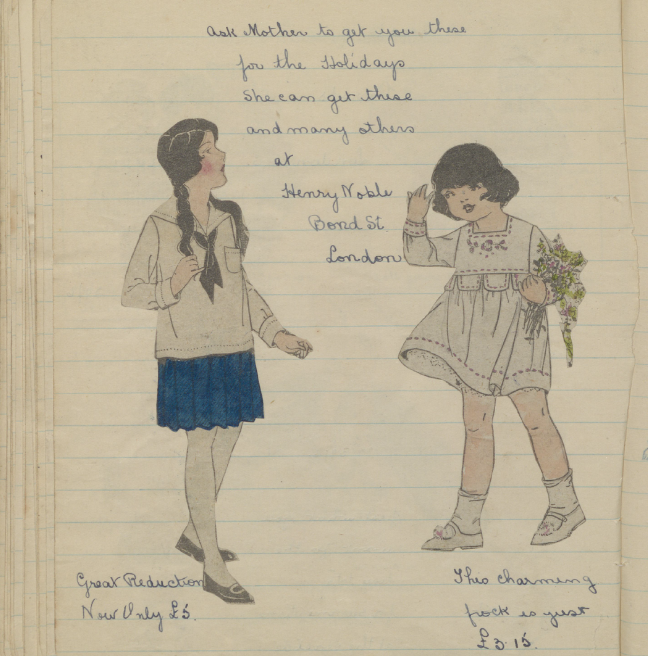 Ask Mother to get you these
for the Holidays
She can get these
and many others
at
Henry Noble
Bond St.
London
Great Reduction
Now Only £5.
This charming
frock is just
£3.15.